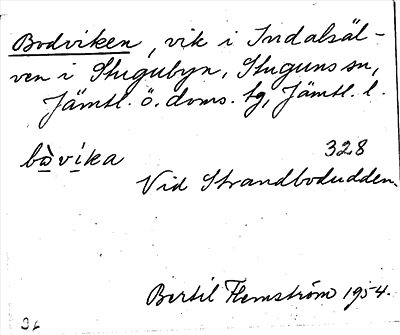 Bodviken, vik i Indalsäl-
ven i Stugubyn, Stuguns sn,
Jämtl. ö. doms. tg, Jämtl. l.
bòvíka
328
Vid Strandbodudden.
Bertil Flemström 1954.